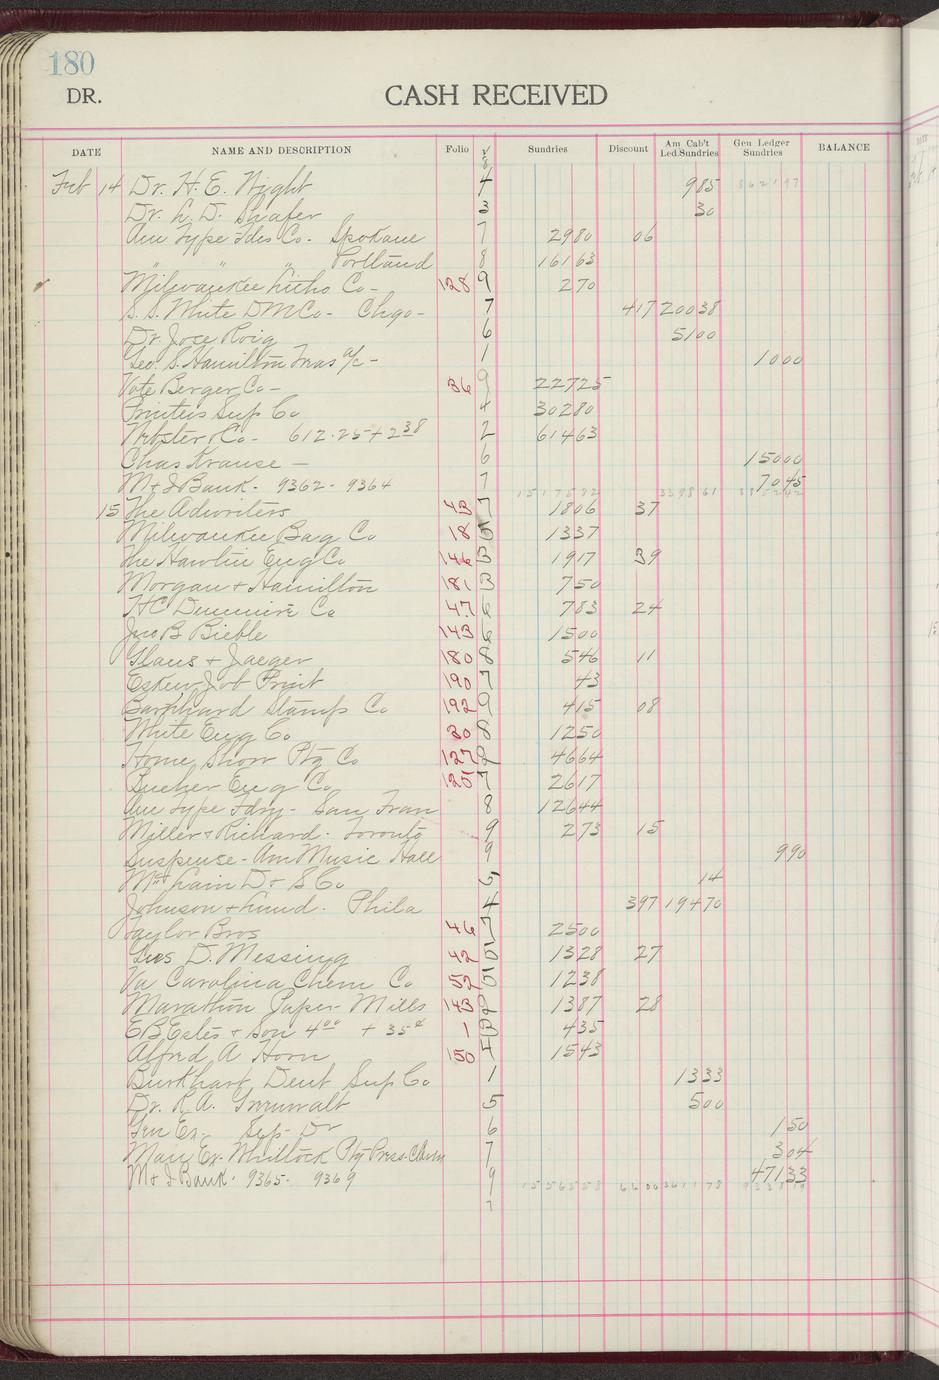 180
DR. CASH RECEIVED
DATE NAME AND DESCRIPTION Folio √ Sundries Discount Am Cab't Led. Sundries Gen Ledger Sundries BALANCE
Feb 14 Dr. H. E. Wight 4 985 862197
Dr. L. D. Shafer 3 30
Am Type Fdes Co - Spokane 7 2980 06
" " " Portland 8 16163
Milwaukee Litho Co - 128 9 270
S. S. White D M Co - Chgo - 7 417 20038
Dr. Jose Roig 6 5100
Geo. S. Hamilton Treas a/c - 1 1000
Vote Berger Co - 36 9 22725
Printers Sup Co 4 30280
Webster & Co - 612.25 + 2 38 2 61463
Chas Krause - 6 15000
M & I Bank - 9362 - 9364 7 7045
15 The Adwriters 43 7 1806 37
Milwaukee Bag Co 18 5 1337
The Hawtin Eng Co 146 3 1917 39
Morgan & Hamilton 181 3 750
H C Dunmire Co 47 6 783 24
Jno B Bieble 143 6 1500
Glaus & Jaeger 180 8 546 11
Eskew Job Print 190 7 43
Barnhard Stamp Co 192 9 415 08
White Eng Co 80 8 1250
Home Show Ptg Co 127 2 4664
Bucher Eng Co 125 7 2617
Am Type Fdry - San Fran 8 12644
Miller & Richard - Toronto 9 273 15
Suspense - Am Music Hall 9 990
McLain D & S Co 6 14
Johnson & Lund - Phila 4 397 19470
Taylor Bros 46 7 2500
D. Messing 42 5 1328 27
Va Carolina Chem Co 52 5 1238
Marathon Paper Mills 143 2 1387 28
E B Estes & Son 4 00 + 35¢ 1 2 435
Alfred A Horn 150 4 1543
Burkhart Dent Sup Co 1 1333
Dr. R. A. Grunwalt 5 500
Gen Ex - Dr 6 150
Main Ex - Whitlock Ptg Press 7 304
M & I Bank - 9365 - 9369 9 47133
7